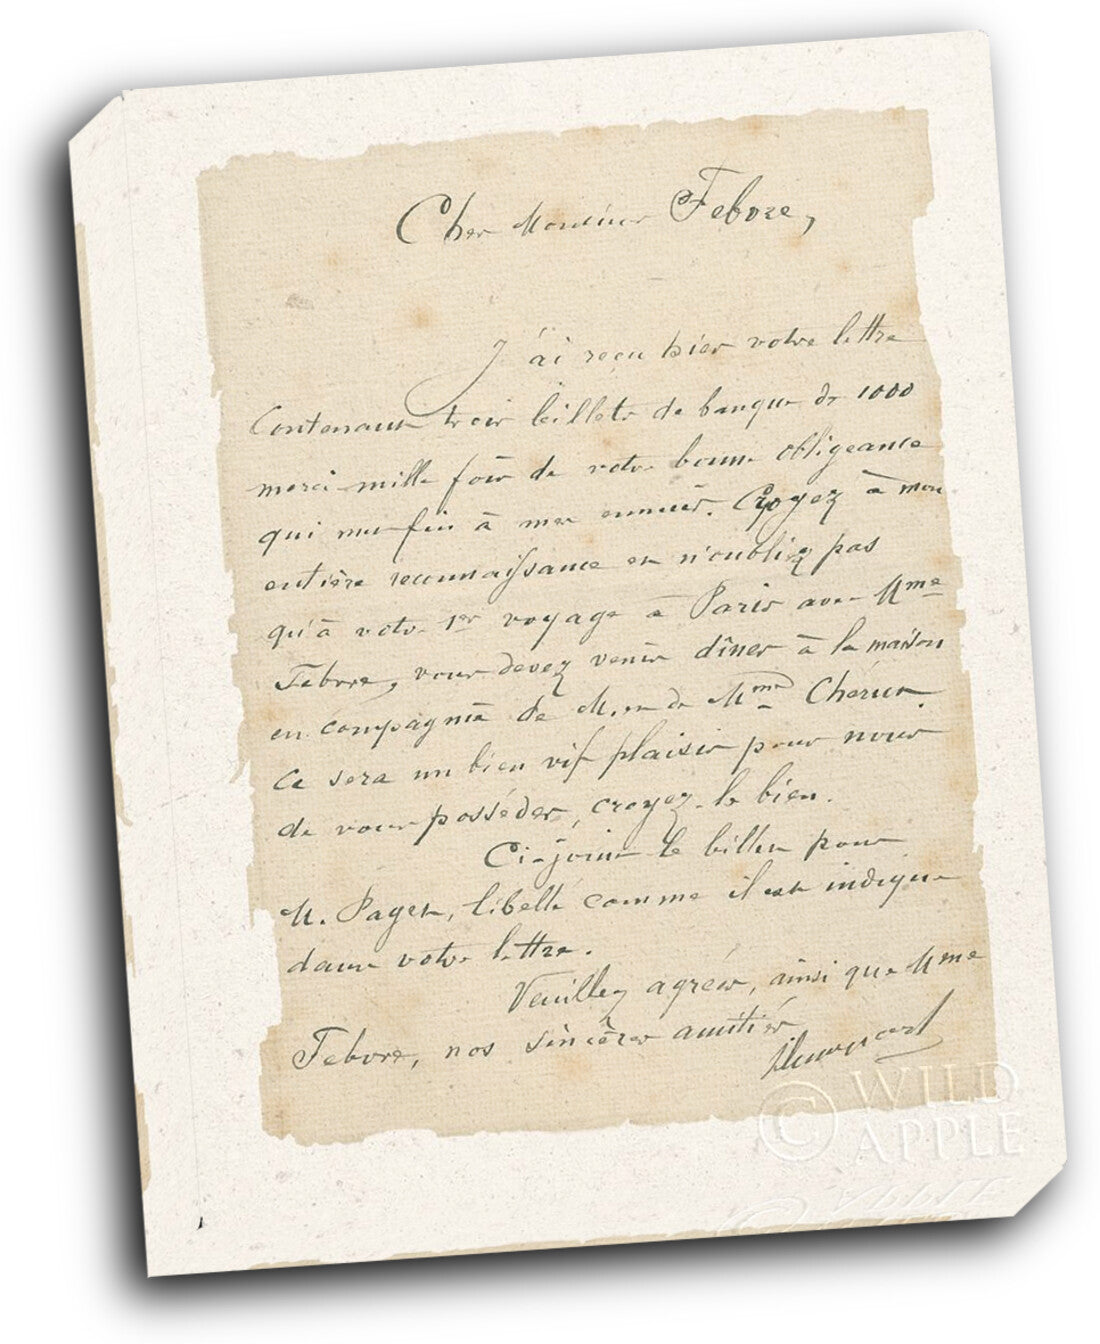 Cher Monsieur Febvre,
J'ai reçu hier votre lettre
Contenant trois billets de banque de 1000
merci mille fois de votre bonne obligeance
qui met fin à mes ennuis. Croyez à mon
entière reconnaissance et n'oubliez pas
qu'à votre 1er voyage à Paris avec Mme
Febvre, vous devez venir dîner à la maison
en compagnie de M. et de Mme
Ce sera un bien vif plaisir pour nous
de vous posséder, croyez-le bien.
Ci-joint le billet pour
M. Paget, libellé comme il est indiqué
dans votre lettre.
Veuillez agréer, ainsi que Mme
Febvre, nos sincères amitiés
© WILD
APPLE